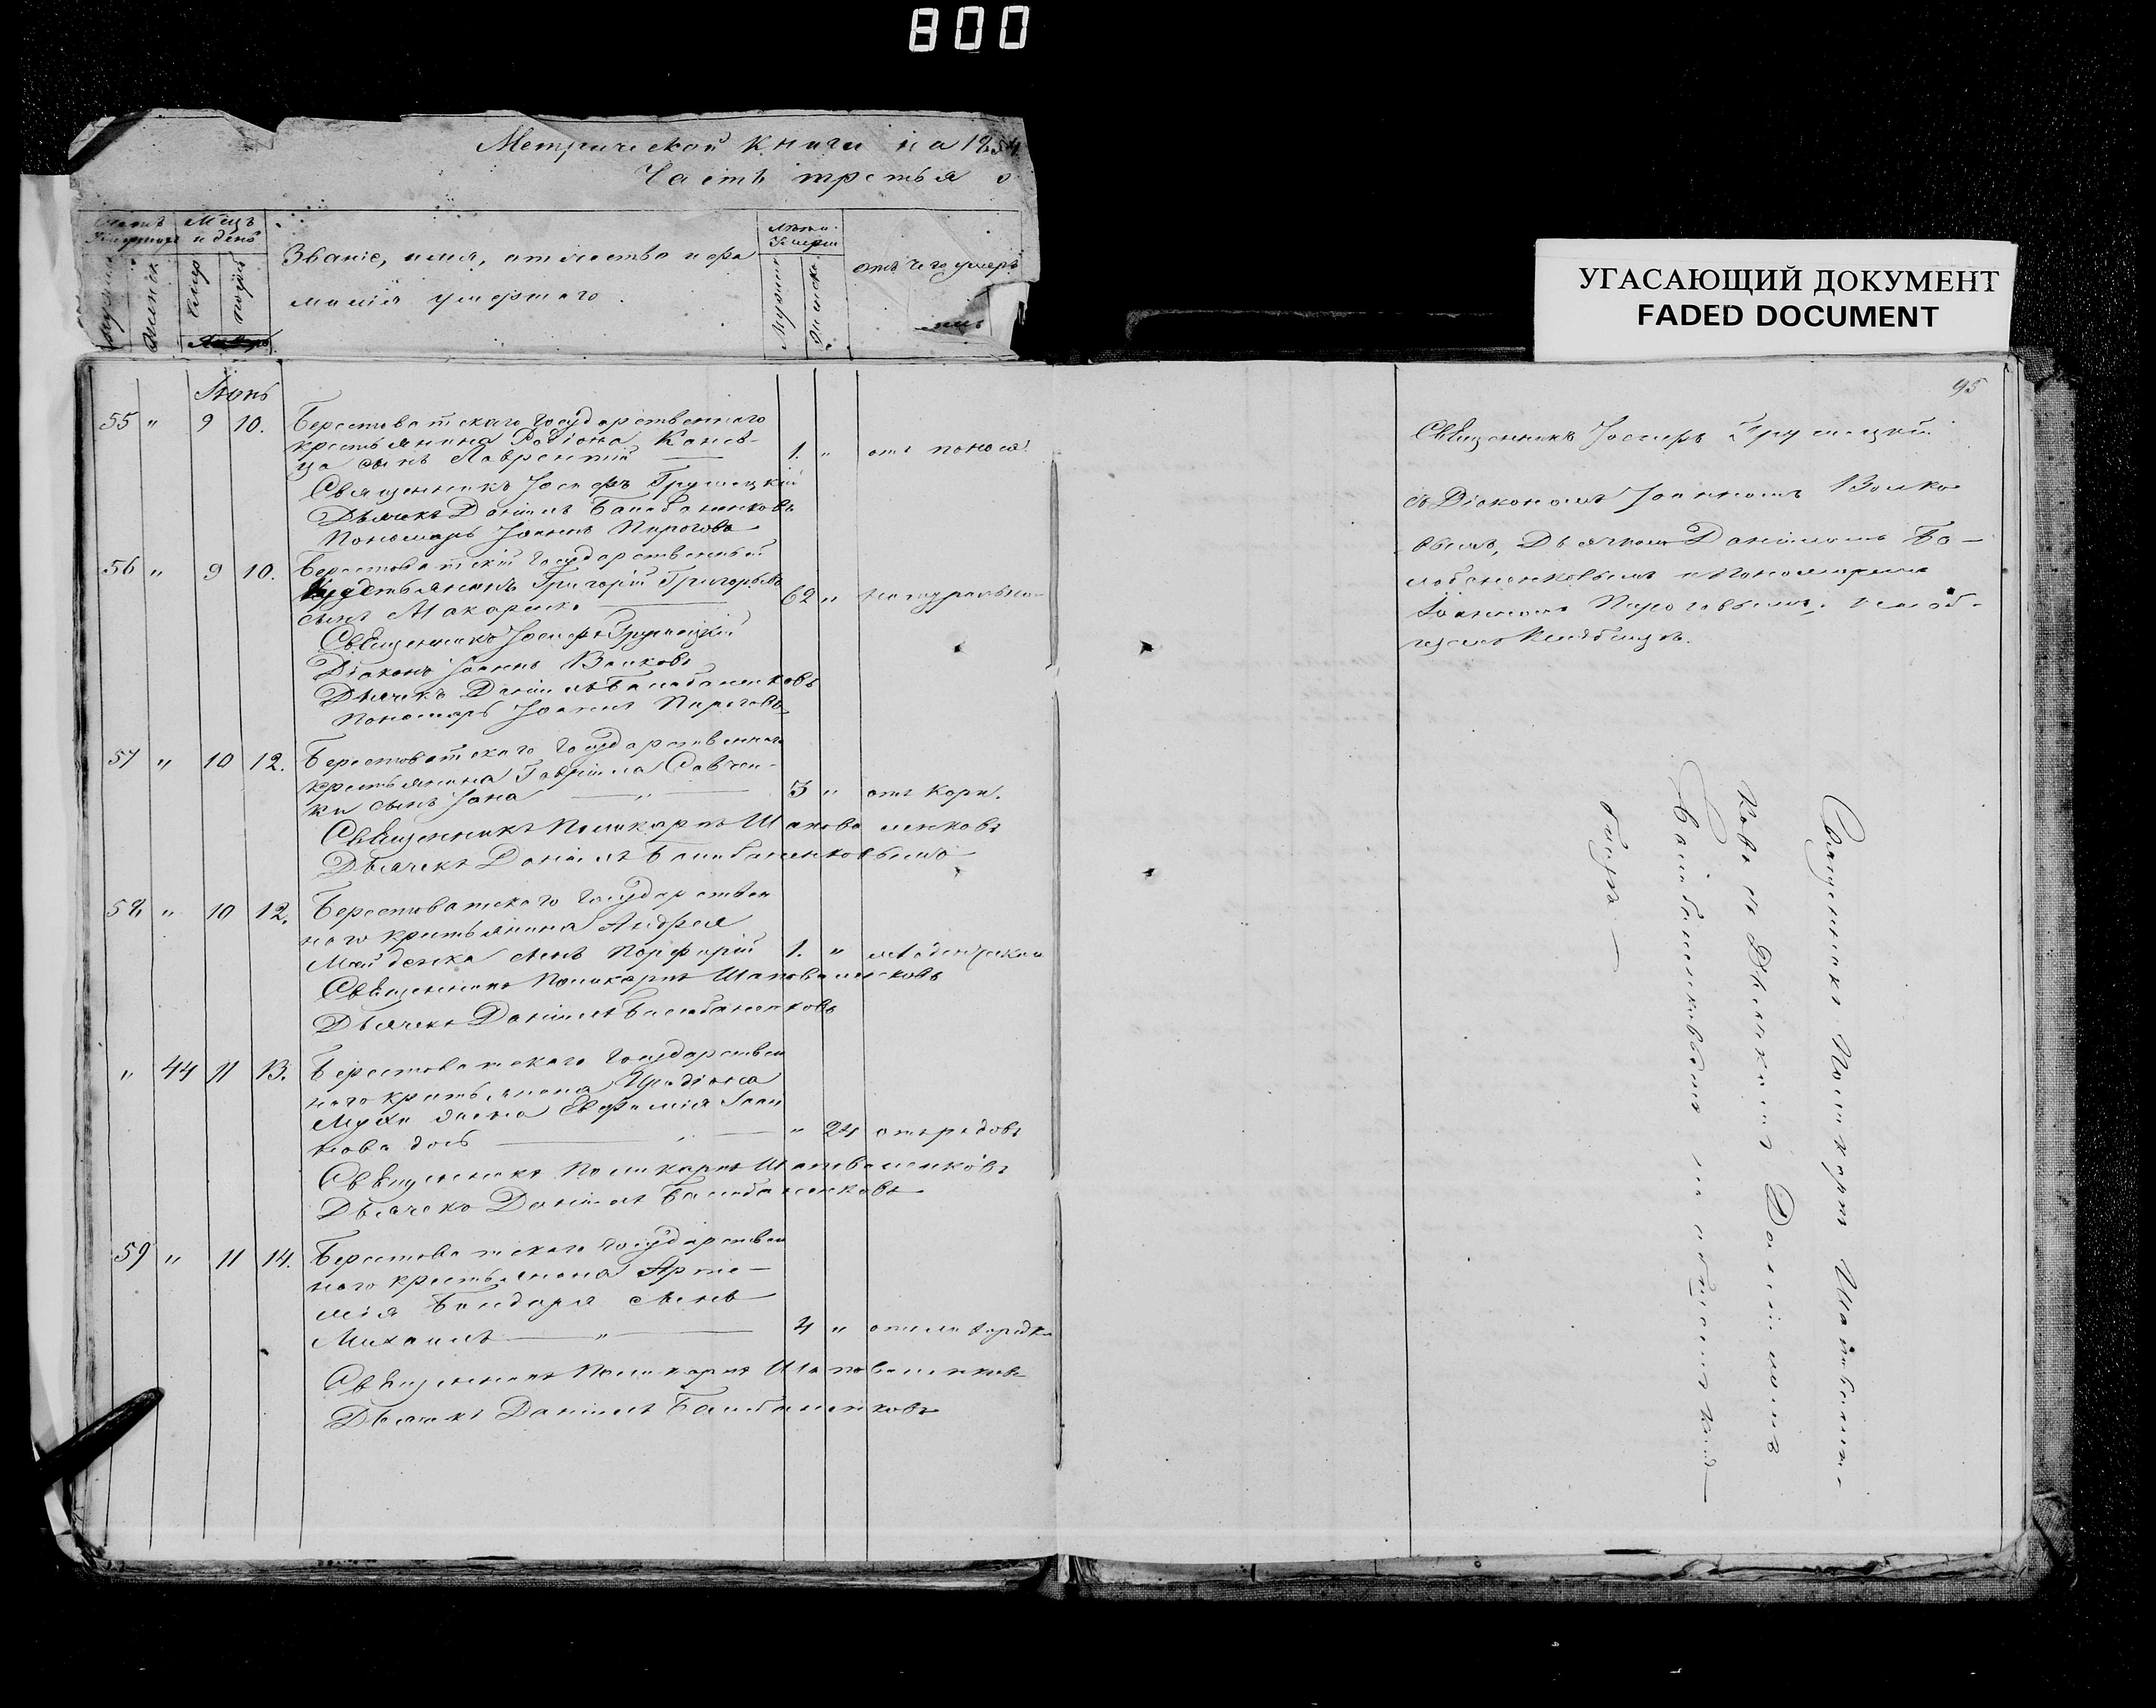 800
Метрической книги на 1854
Часть третья о
Счетъ умершихъ
Мѣцъ и день
Званіе, имя, отчество и фа
милія умершаго.
Лѣта Умерш
отъ чего умеръ
УГАСАЮЩИЙ ДОКУМЕНТ
FADED DOCUMENT
Іюнь
55 " 9 10. Берестоватскаго Государственнаго
крестьянина Родіона
сынъ Лаврентій 1. " отъ поноса
Священникъ Іосифъ Грушецкій
Дьячекъ Даніилъ Балабаненковъ
Пономарь Іоаннъ Пироговъ
56 " 9 10. Берестоватскій Государственный
крестьянинъ Григорій Григорьевъ
сынъ Макаренко 62 " натурально
Священникъ Іосифъ Грушецкій
Діаконъ Іоаннъ Волковъ
Дьячекъ Даніилъ Балабаненковъ
Пономарь Іоаннъ Пироговъ
57 " 10 12. Берестоватскаго Государственнаго
крестьянина Гавріила Савчен-
ки сынъ 3 " отъ кори.
Священникъ Поликарпъ Шаповаленковъ
Дьячекъ Даніилъ Балабаненковымъ
58 " 10 12. Берестоватскаго Государствен
наго крестьянина Андрея
сынъ Порфирій 1. " младенческой
Священникъ Поликарпъ Шаповаленковъ
Дьячекъ Даніилъ Балабаненковъ
" 44 11 13. Берестоватскаго Государствен
наго крестьянина Иродіона
Мухи жена Евфимія Іоан
нова дочь " 24 отъ родовъ
Священникъ Поликарпъ Шаповаленковъ
Дьячекъ Даніилъ Балабаненковъ
59 " 11 14. Берестоватскаго Государствен
наго крестьянина Арте-
мія Бондаря сынъ
Михаилъ " 4 "
Священникъ Поликарпъ Шаповаленковъ
Дьячекъ Даніилъ Балабаненковъ
95
Священникъ Іосифъ Грушецкій
съ Діакономъ Іоанномъ Волко
вымъ, Дьячкомъ Даніиломъ Ба-
лабаненковымъ и Пономаремъ
Іоанномъ Пироговымъ на об-
щемъ кладбищѣ.
Священникъ Поликарпъ Шаповален-
ковъ съ Дьячкомъ Даніиломъ
Балабаненковымъ на общемъ клад-
бищѣ